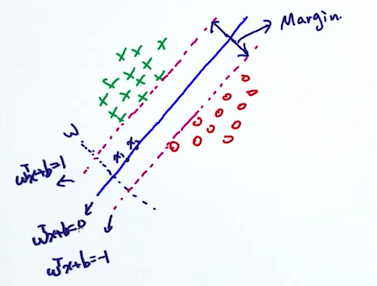 Margin.
w
x₁ x₂
wᵀx+b=1
wᵀx+b=0
wᵀx+b=-1